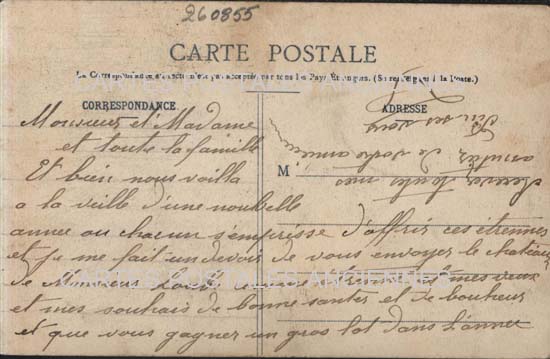 260855
CARTE POSTALE
La Correspondance au recto n'est pas acceptée par tous les Pays Étrangers. (Se renseigner à la Poste.)
CORRESPONDANCE
ADRESSE
M
Monsieur et Madame
et toute la famille
Et bien nous voilla
a la veille d'une nouvelle
annee ou chacun s'empresse d'affrir ces étrennes
et je me fait un devoir de vous envoyer le chateau
de Monsieur
et mes souhais de bonne santer et de bonheur
et que vous gagner un gros lot dans l'anner
de votre
CARTES POSTALES ANCIENNES